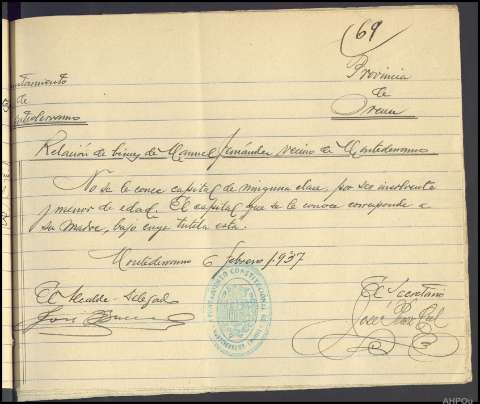 (69
Provincia
de
Orense
de
Relación de bienes de Manuel Fernández vecino de Montederramo
No se le conoce capital de ninguna clase, por ser insolvente
y menor de edad. El capital que se le conoce corresponde a
su madre, bajo cuya tutela esta.
Montederramo 6 febrero 1937
El Alcalde-Delegado
El Secretario
José
José
AHPOu